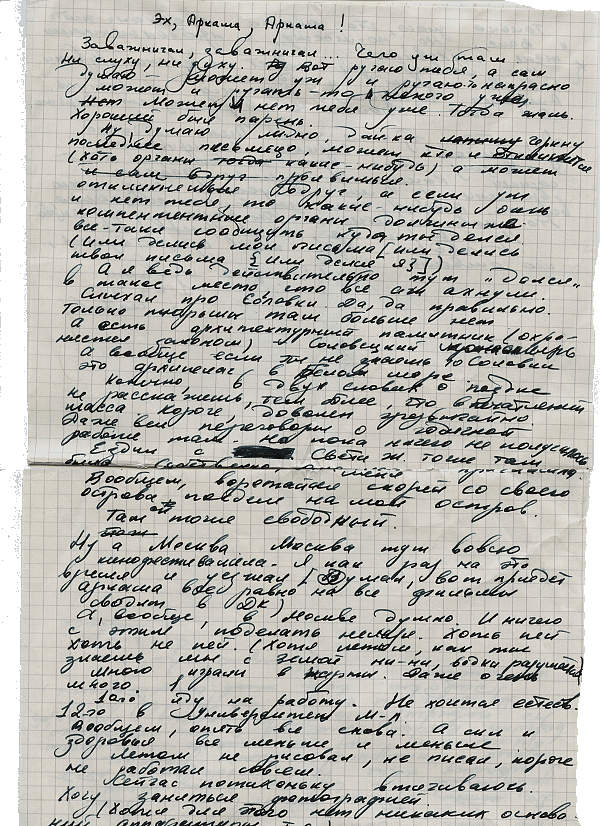 Эх, Аркаша, Аркаша!
Заважничал, заважничал... Чего уж там.
Ни слуху, ни духу. вот ругаю тебя, а сам
думаю - может уж и ругаю-то напрасно
может и ругать-то некого уж.
Может и нет тебя уже. Тогда жаль.
Хороший был парень.
Ну думаю ладно дай-ка
последнее письмецо, может кто и
(хотя органы какие-нибудь) а может
и сам вдруг проявишься.
откликнешься вдруг, а если уж
и нет тебя, то какие-нибудь очень
компентентные органы должны же
все-таки сообщить куда ты делся
(или делись мои письма [или делись
твои письма {или делся я}])
А я ведь действительно тут "делся"
в такое место, что все аж ахнули.
Слыхал про Соловки. Да, да правильно.
Только там больше нет
А есть архитектурный памятник (охра-
няется законом) Соловецкий монастырь
А вообще если ты не знаешь то Соловки
это архипелаг в Белом море
Конечно в двух словах о поездке
не расскажешь, тем более что впечатлений
масса короче, доволен чрезвычайно.
Даже вел переговоры о
работе там - но пока ничего не получилось
Ездил с Света ж. тоже там
была
Вообщем, возвращайся скорей со своего
острова поедем на мой остров.
Там тоже свободный.
Ну а Москва. Москва тут вовсю
кинофестивалила. Я как раз на это
время и уезжал [Думал, вот приедет
Аркаша все равно на все фильмы
сводит в ДК)
А, вообще, в Москве душно. И ничего
с этим поделать нельзя. Хоть пей
хоть не пей. (Хотя летом, как ты
знаешь мы с женой ни-ни, водки разумеется)
Много играли в карты. Даже очень
много.
1ого иду на работу. Не хочится естеств.
12-го в Университет М-Л.
Вообщем, опять все снова. А сил и
здоровья все меньше и меньше
Летом не рисовал, не писал, короче
не работал совсем.
Сейчас потихоньку втягиваюсь.
Хочу заняться фотографией
(Хотя для этого нет никаких основа-